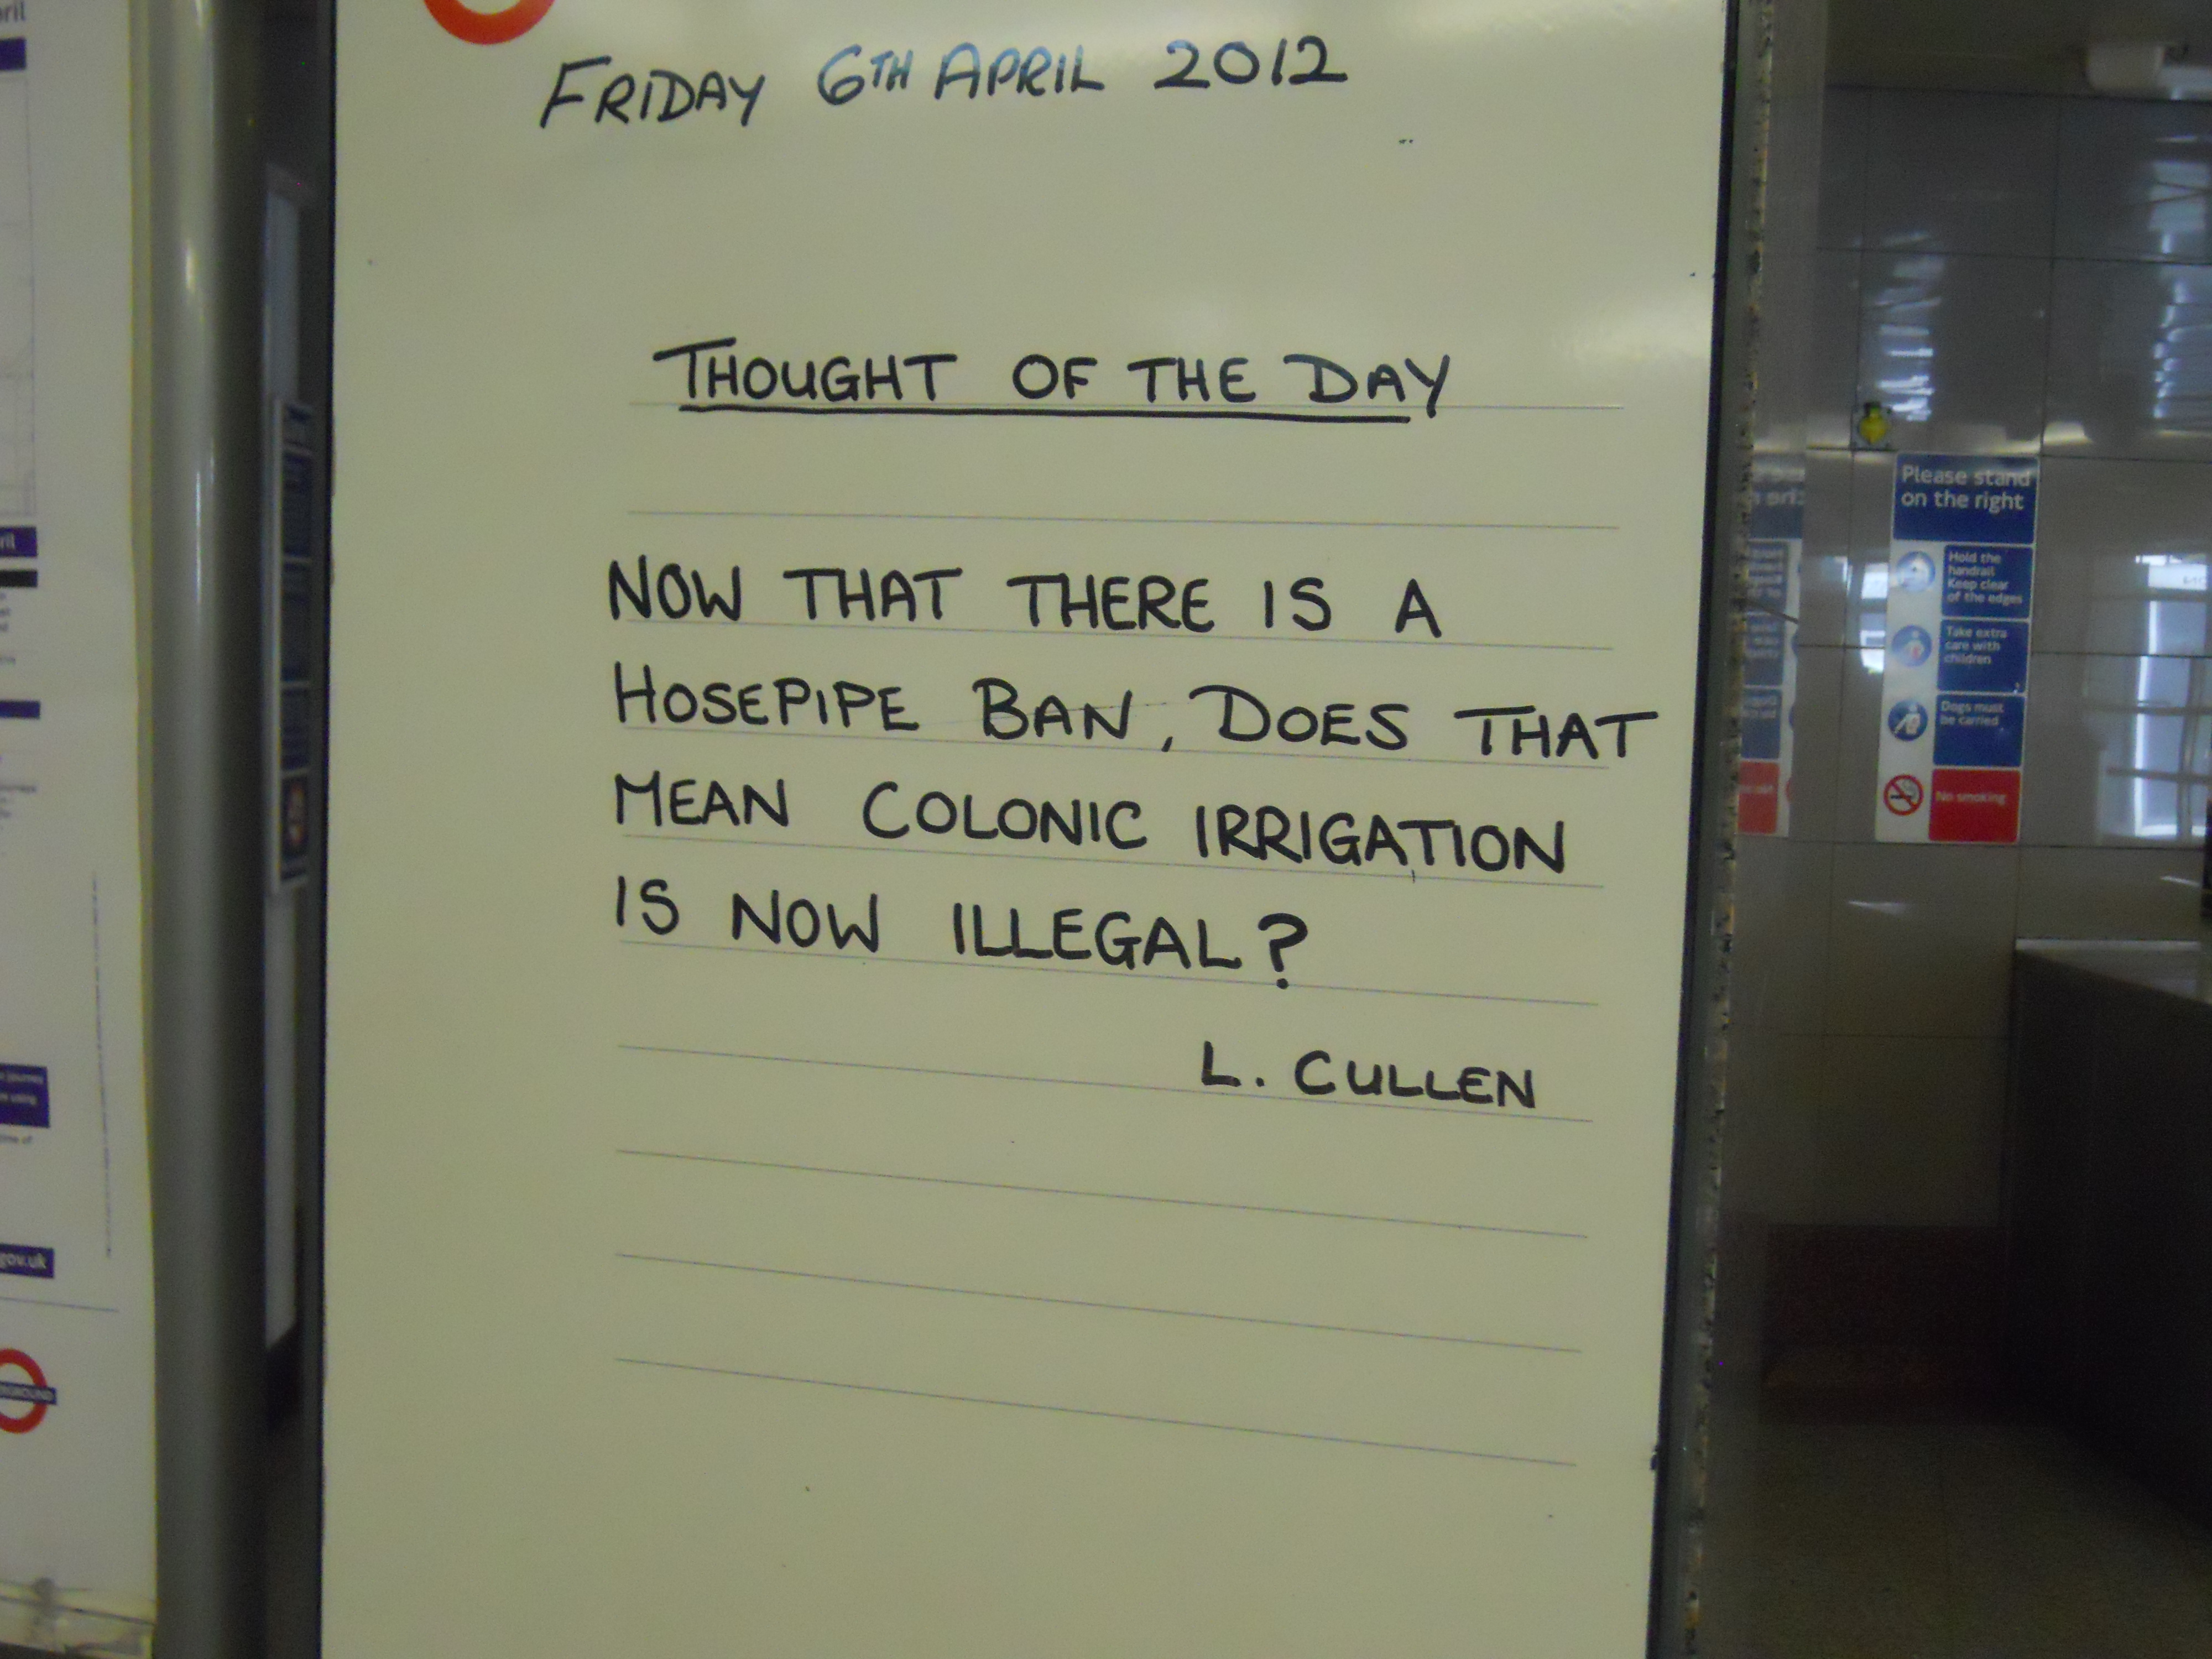 FRIDAY 6TH APRIL 2012
THOUGHT OF THE DAY
NOW THAT THERE IS A
HOSEPIPE BAN, DOES THAT
MEAN COLONIC IRRIGATION
IS NOW ILLEGAL?
L. CULLEN
Please stand
on the right
Hold the
handrail
Keep clear
of the edges
Take extra
care with
children
Dogs must
be carried
No smoking
gov.uk